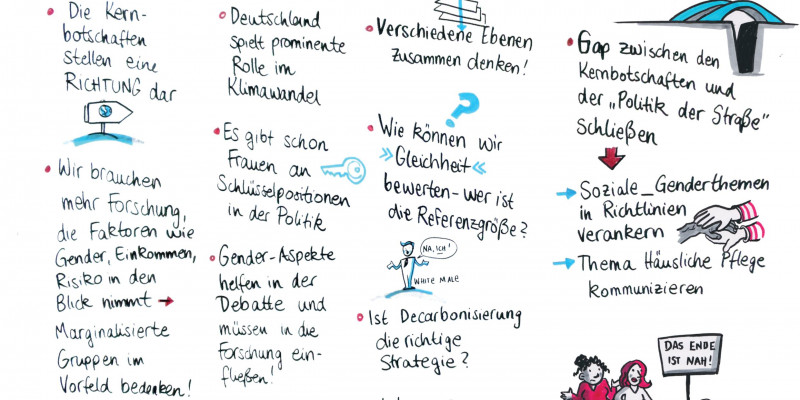 • Die Kern-
botschaften
stellen eine
RICHTUNG dar
• Wir brauchen
mehr Forschung,
die Faktoren wie
Gender, Einkommen,
Risiko in den
Blick nimmt →
Marginalisierte
Gruppen im
Vorfeld bedenken!
• Deutschland
spielt prominente
Rolle im
Klimawandel
• Es gibt schon
Frauen an
Schlüsselpositionen
in der Politik
• Gender-Aspekte
helfen in der
Debatte und
müssen in die
Forschung ein-
fließen!
• Verschiedene Ebenen
zusammen denken!
?
• Wie können wir
»Gleichheit«
bewerten - wer ist
die Referenzgröße?
NA, ICH!
WHITE MALE
• Ist Decarbonisierung
die richtige
Strategie?
• Gap zwischen den
Kernbotschaften und
der „Politik der Straße"
schließen
→ Soziale_Genderthemen
in Richtlinien
verankern
→ Thema Häusliche Pflege
kommunizieren
DAS ENDE
IST NAH!